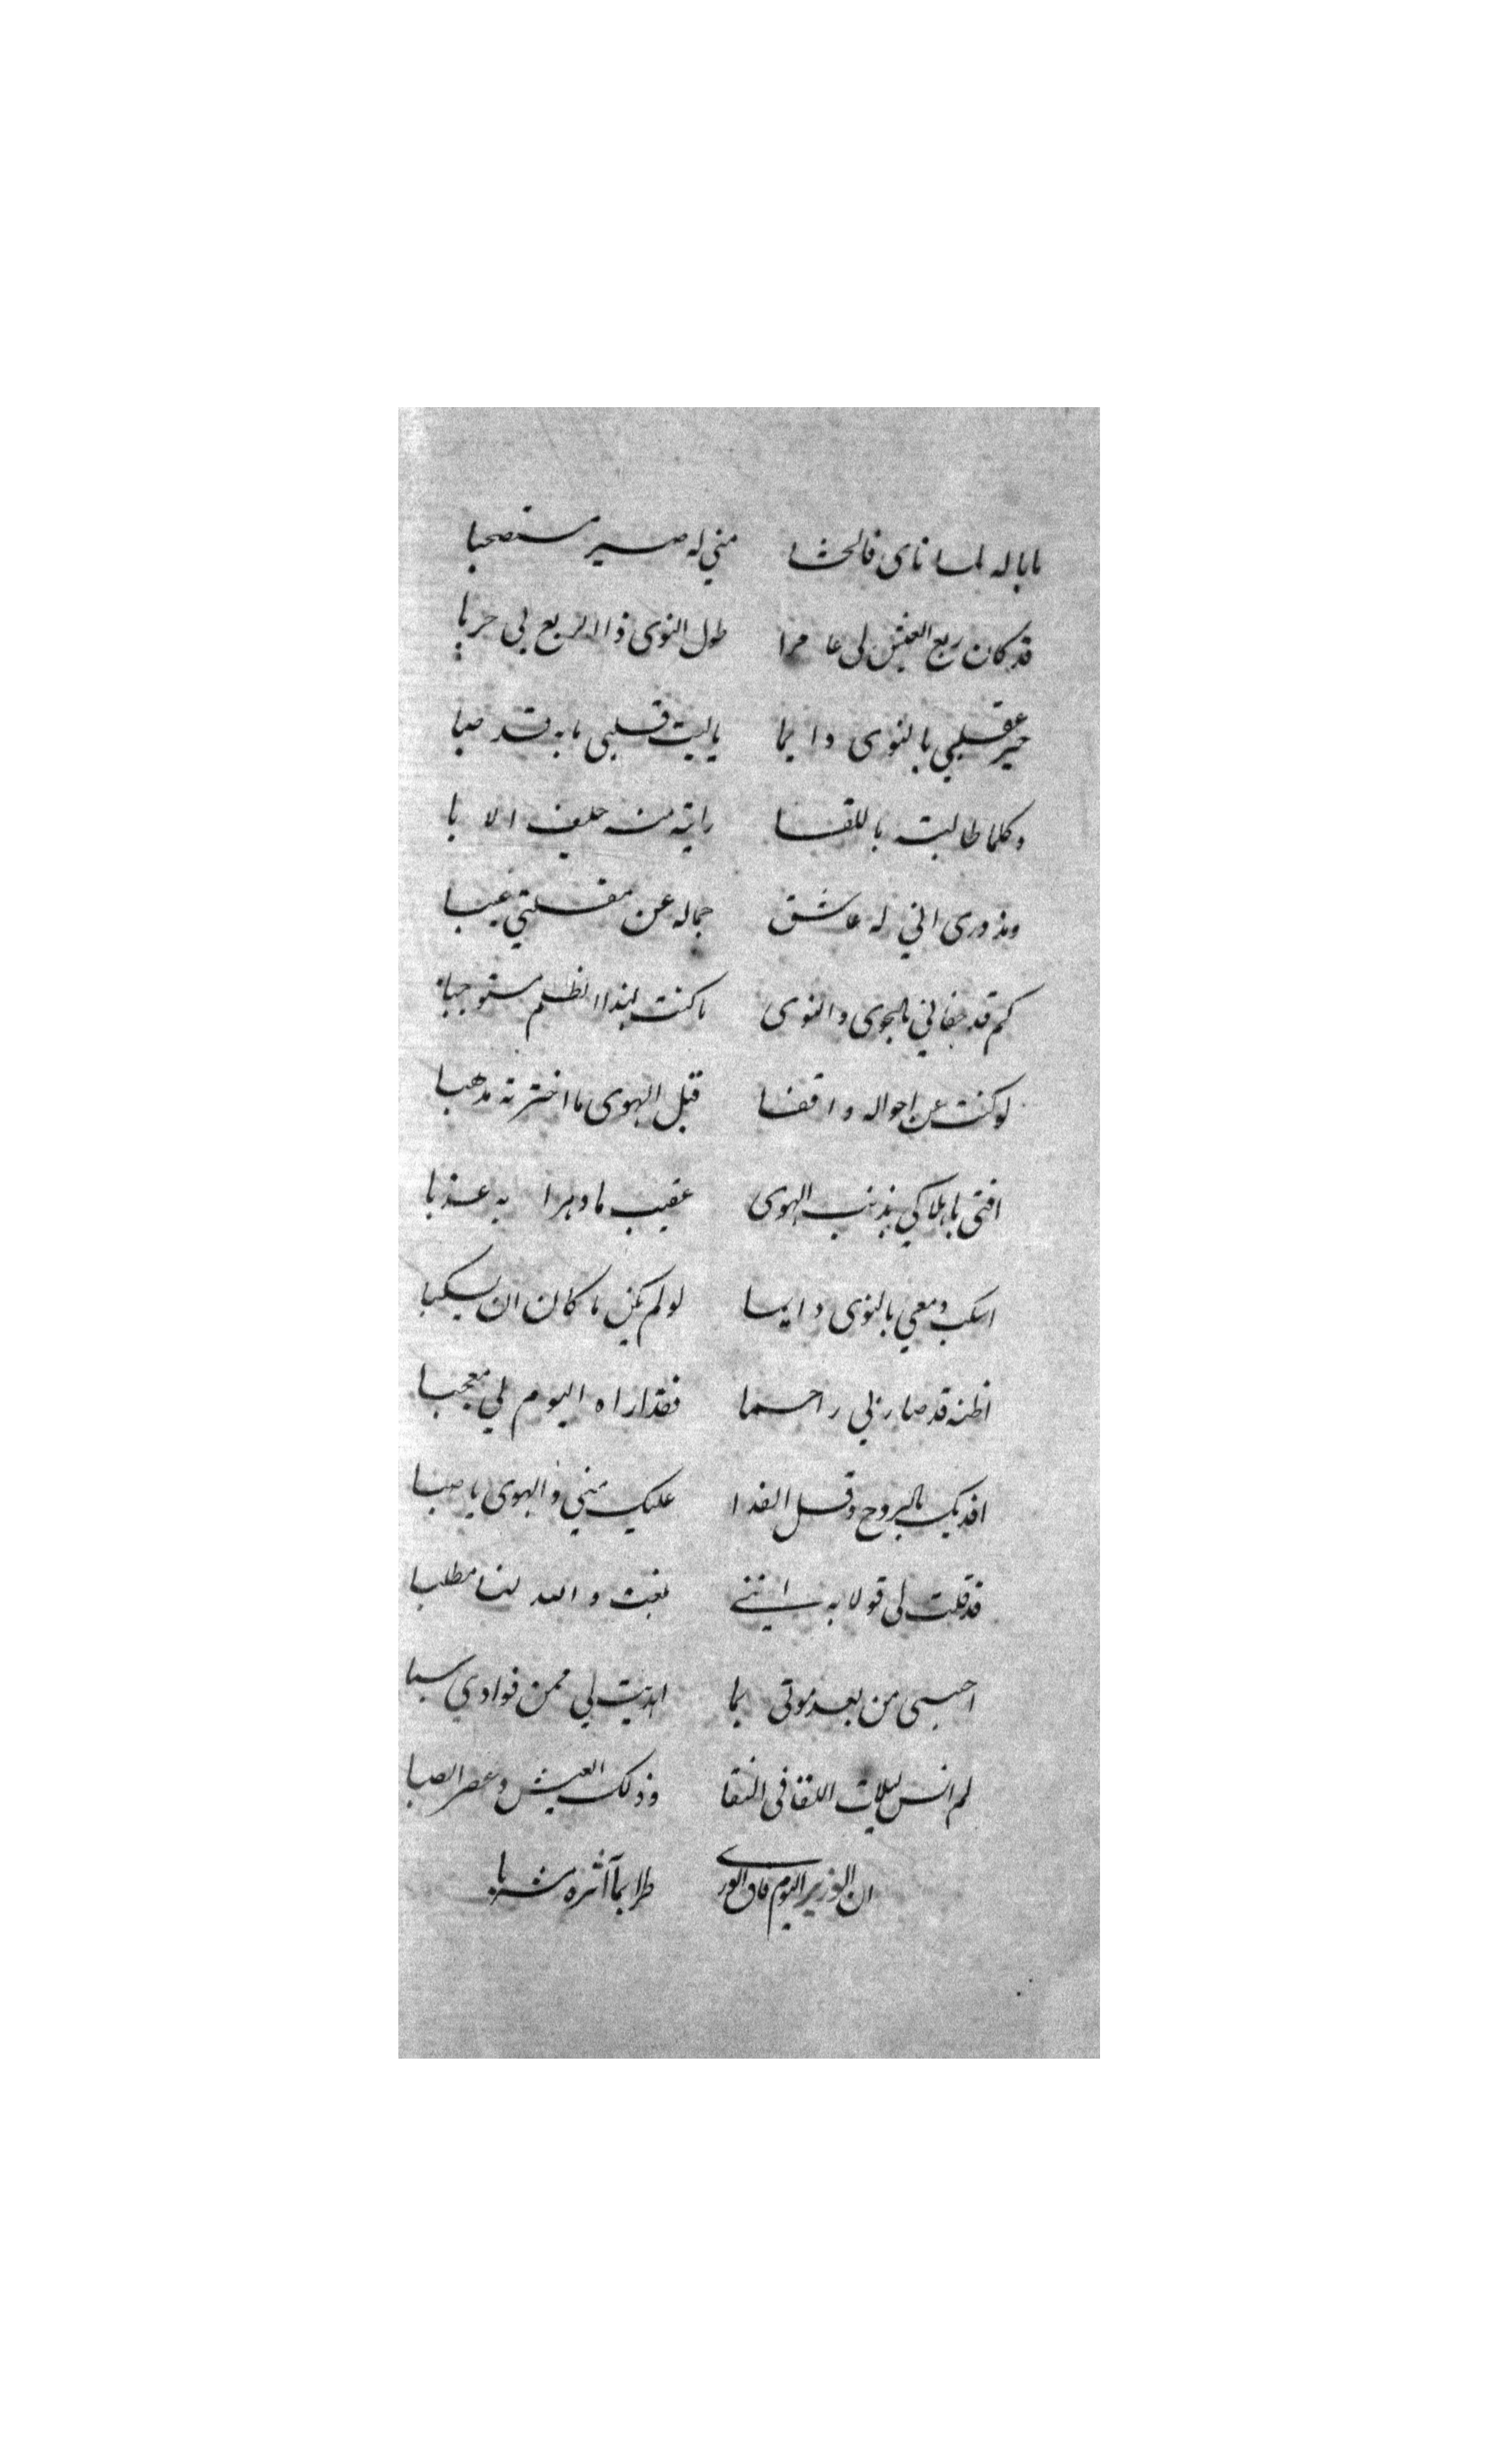 ما باله لما ناى فالحشا مني له صير مستصحبا
قد كان ربع العيش لى عامرا طول النوى ذا الربع لى خربا
حير عقلي بالنوى دايما ياليت قلبي ما به قد صبا
وكلما طالبته باللقا رايته منه حليف الابا
ومذ درى اني له عاشق جماله عن مقلتي غيبا
كم قد جفاني بالجوى والنوى ما كنت لهذا الظلم مستوجبا
لو كنت عن احواله واقفا قبل الهوى ما اخترته مذهبا
افتى باهلاكي بذنب الهوى عقيب ما دهرا به عذبا
اسكب دمعي بالنوى دايما لو لم يكن ما كان ان يسكبا
اظنه قد صار بي راحما فقد اراه اليوم لي معجبا
افديك بالروح وقل الفدا عليك مني والهوى يا صبا
قد قلت لى قولا به انني بلغت والله لنا مطلبا
احبى من بعد موتى بما اهديت لي ممن فوادي سبا
لم انس ليلات اللقا فى النقا وذلك العيش وعصر الصبا
ان الوزير اليوم فاق الورى طرا بمآثره مشربا